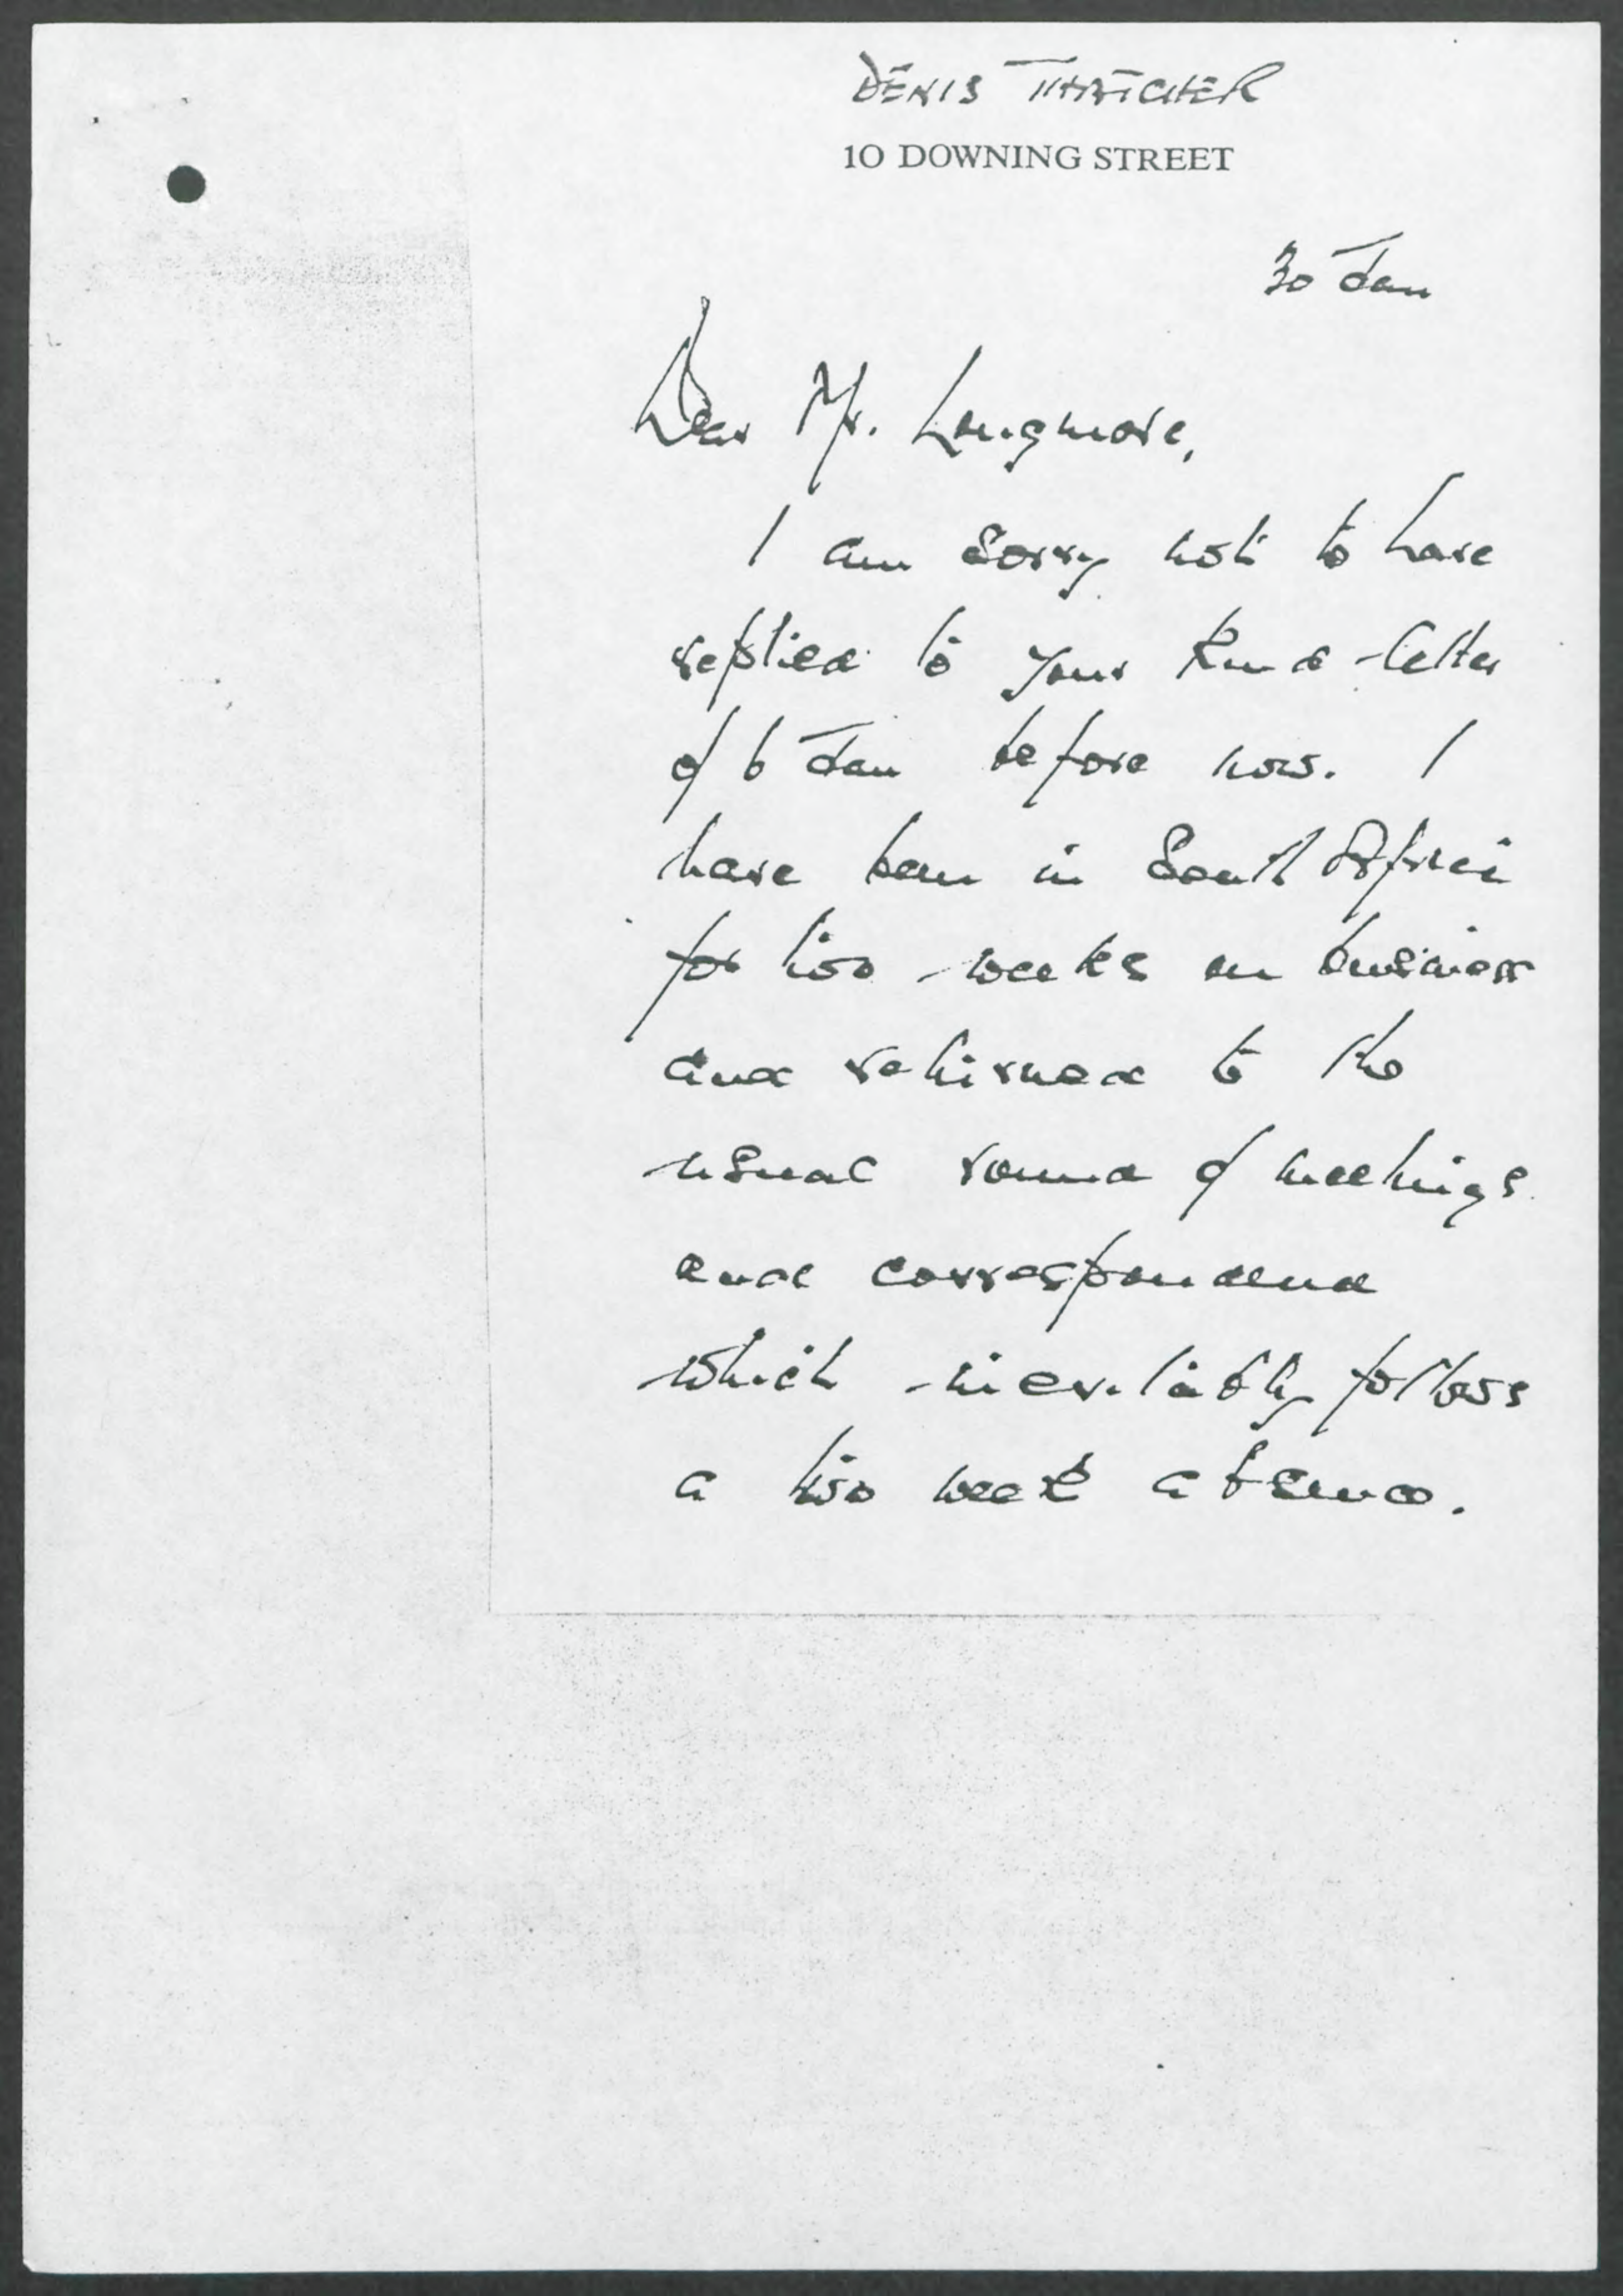 DENIS THATCHER
10 DOWNING STREET
30 Jan
Dear Mr. Longmore,
I am sorry not to have
replied to your kind letter
of 6 Jan before now. I
have been in South Africa
for two weeks on business
and returned to the
usual round of meetings
and correspondence
which inevitably follows
a two week absence.